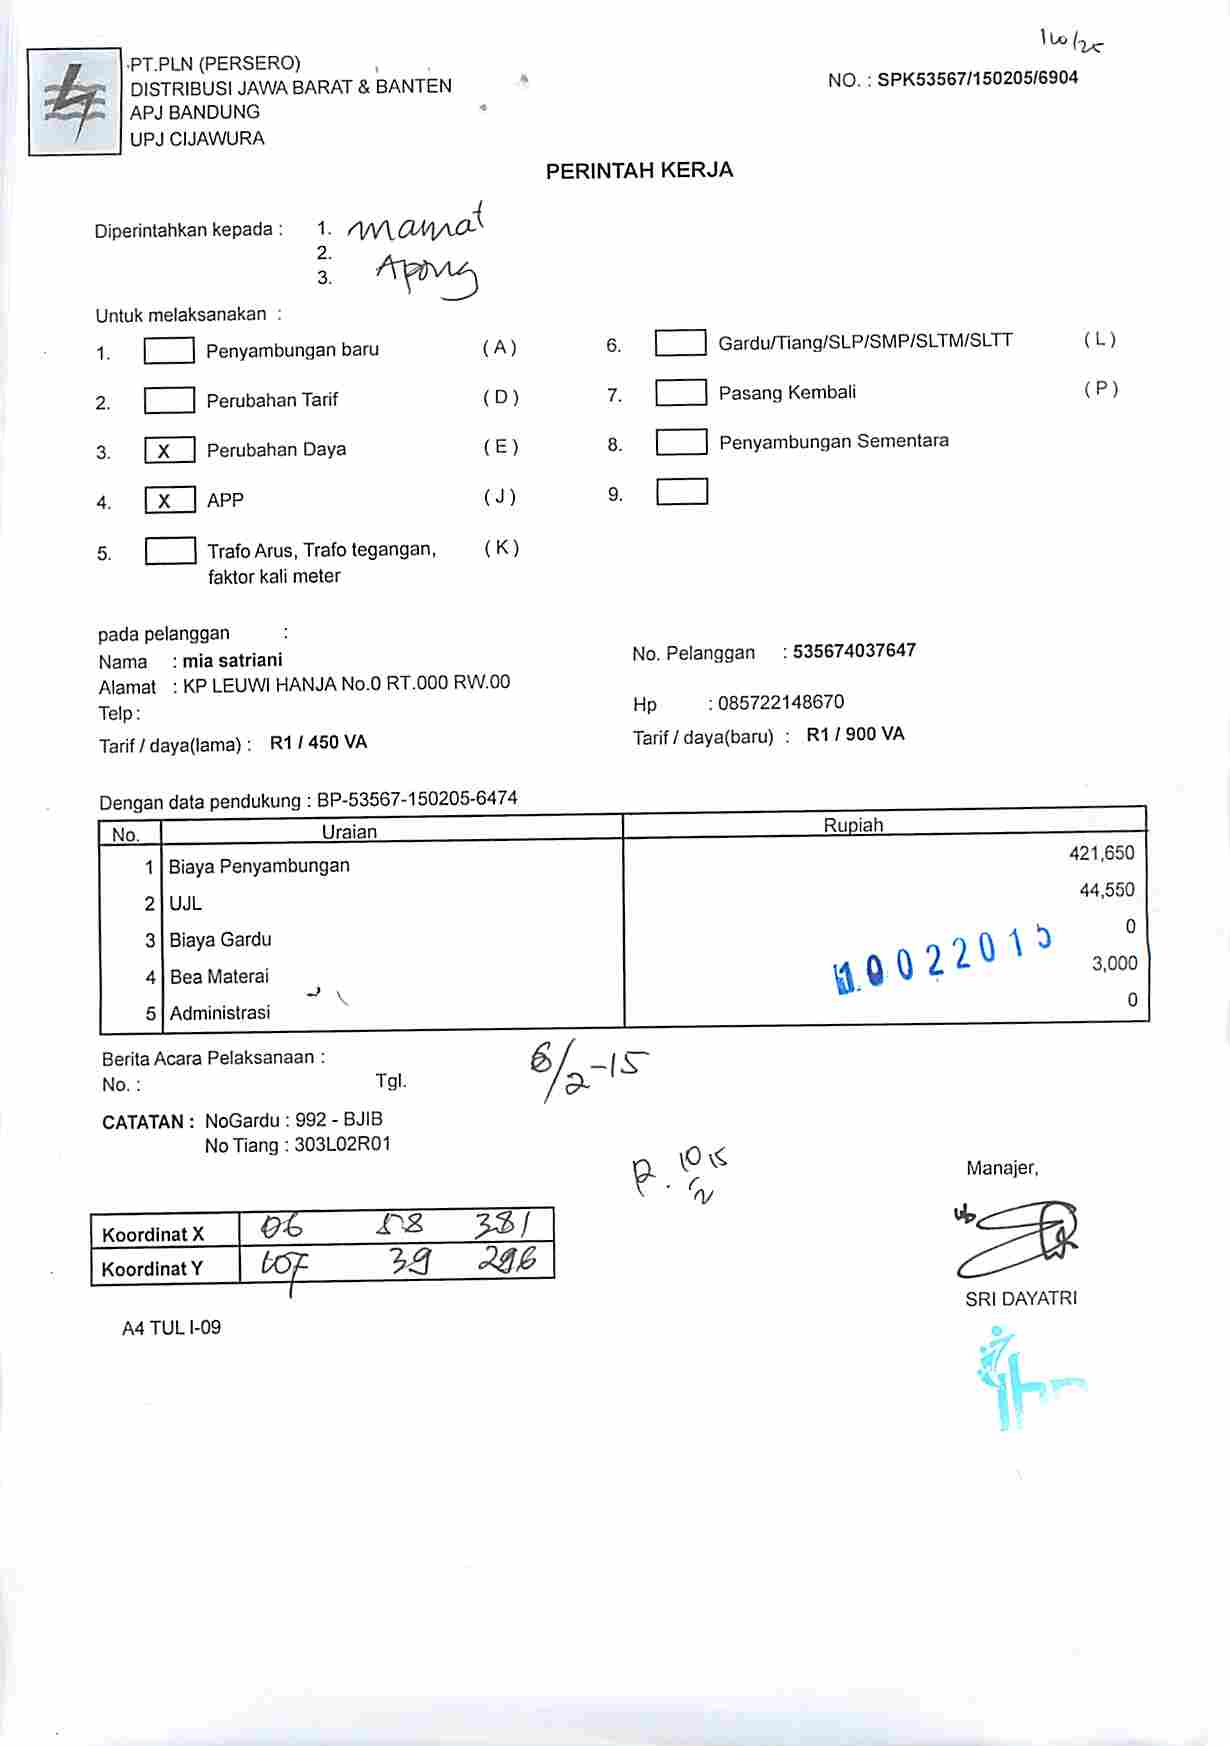 160/25
PT.PLN (PERSERO)
DISTRIBUSI JAWA BARAT & BANTEN
APJ BANDUNG
UPJ CIJAWURA
NO. : SPK53567/150205/6904
PERINTAH KERJA
Diperintahkan kepada : 1. Mamat
2.
3. Apong
Untuk melaksanakan :
1. Penyambungan baru ( A )
2. Perubahan Tarif ( D )
3. X Perubahan Daya ( E )
4. X APP ( J )
5. Trafo Arus, Trafo tegangan, ( K )
faktor kali meter
6. Gardu/Tiang/SLP/SMP/SLTM/SLTT ( L )
7. Pasang Kembali ( P )
8. Penyambungan Sementara
9.
pada pelanggan :
Nama : mia satriani
Alamat : KP LEUWI HANJA No.0 RT.000 RW.00
Telp :
Tarif / daya(lama) : R1 / 450 VA
No. Pelanggan : 535674037647
Hp : 085722148670
Tarif / daya(baru) : R1 / 900 VA
Dengan data pendukung : BP-53567-150205-6474
No. Uraian Rupiah
1 Biaya Penyambungan 421,650
2 UJL 44,550
3 Biaya Gardu 0
4 Bea Materai 3,000
5 Administrasi 0
10022015
Berita Acara Pelaksanaan :
No. : Tgl. 6/2-15
CATATAN : NoGardu : 992 - BJIB
No Tiang : 303L02R01
Manajer,
Koordinat X 06 58 381
Koordinat Y 107 39 296
SRI DAYATRI
A4 TUL I-09